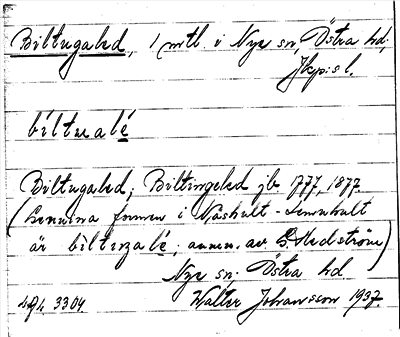 Biltugaled, 1 mtl i Nye sn, Östra hd,
Jkps l.
biltualé
Biltugaled; Biltingeled jb. 1777, 1877.
(Denna formen i Näshult - Lemnhult
är biltualé; anm. av G Hedström)
Nye sn; Östra hd.
Walter Johansson 1937.